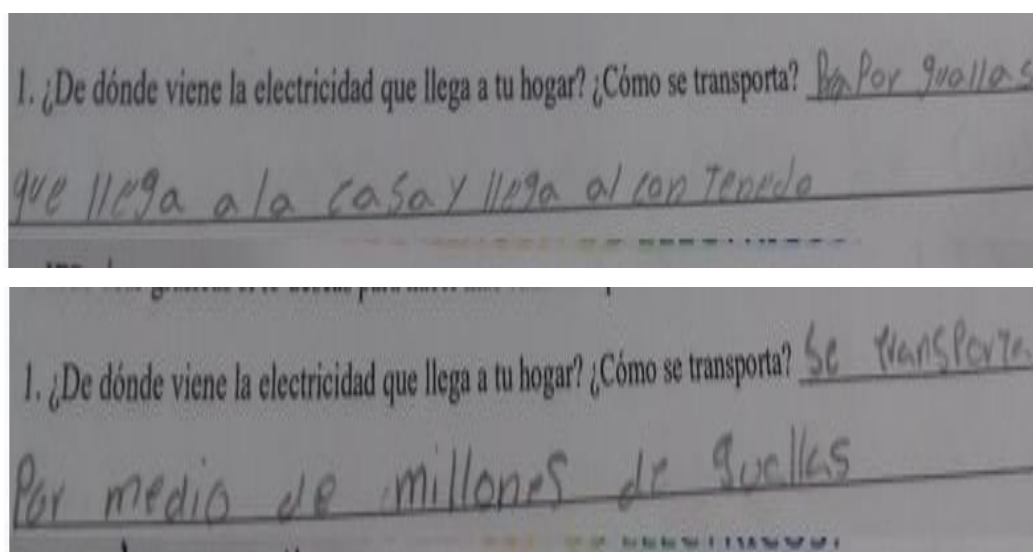 1. ¿De dónde viene la electricidad que llega a tu hogar? ¿Cómo se transporta? Por guallas
que llega a la casa y llega al con Tenedo
1. ¿De dónde viene la electricidad que llega a tu hogar? ¿Cómo se transporta? Se transporta
Por medio de millones de guellas